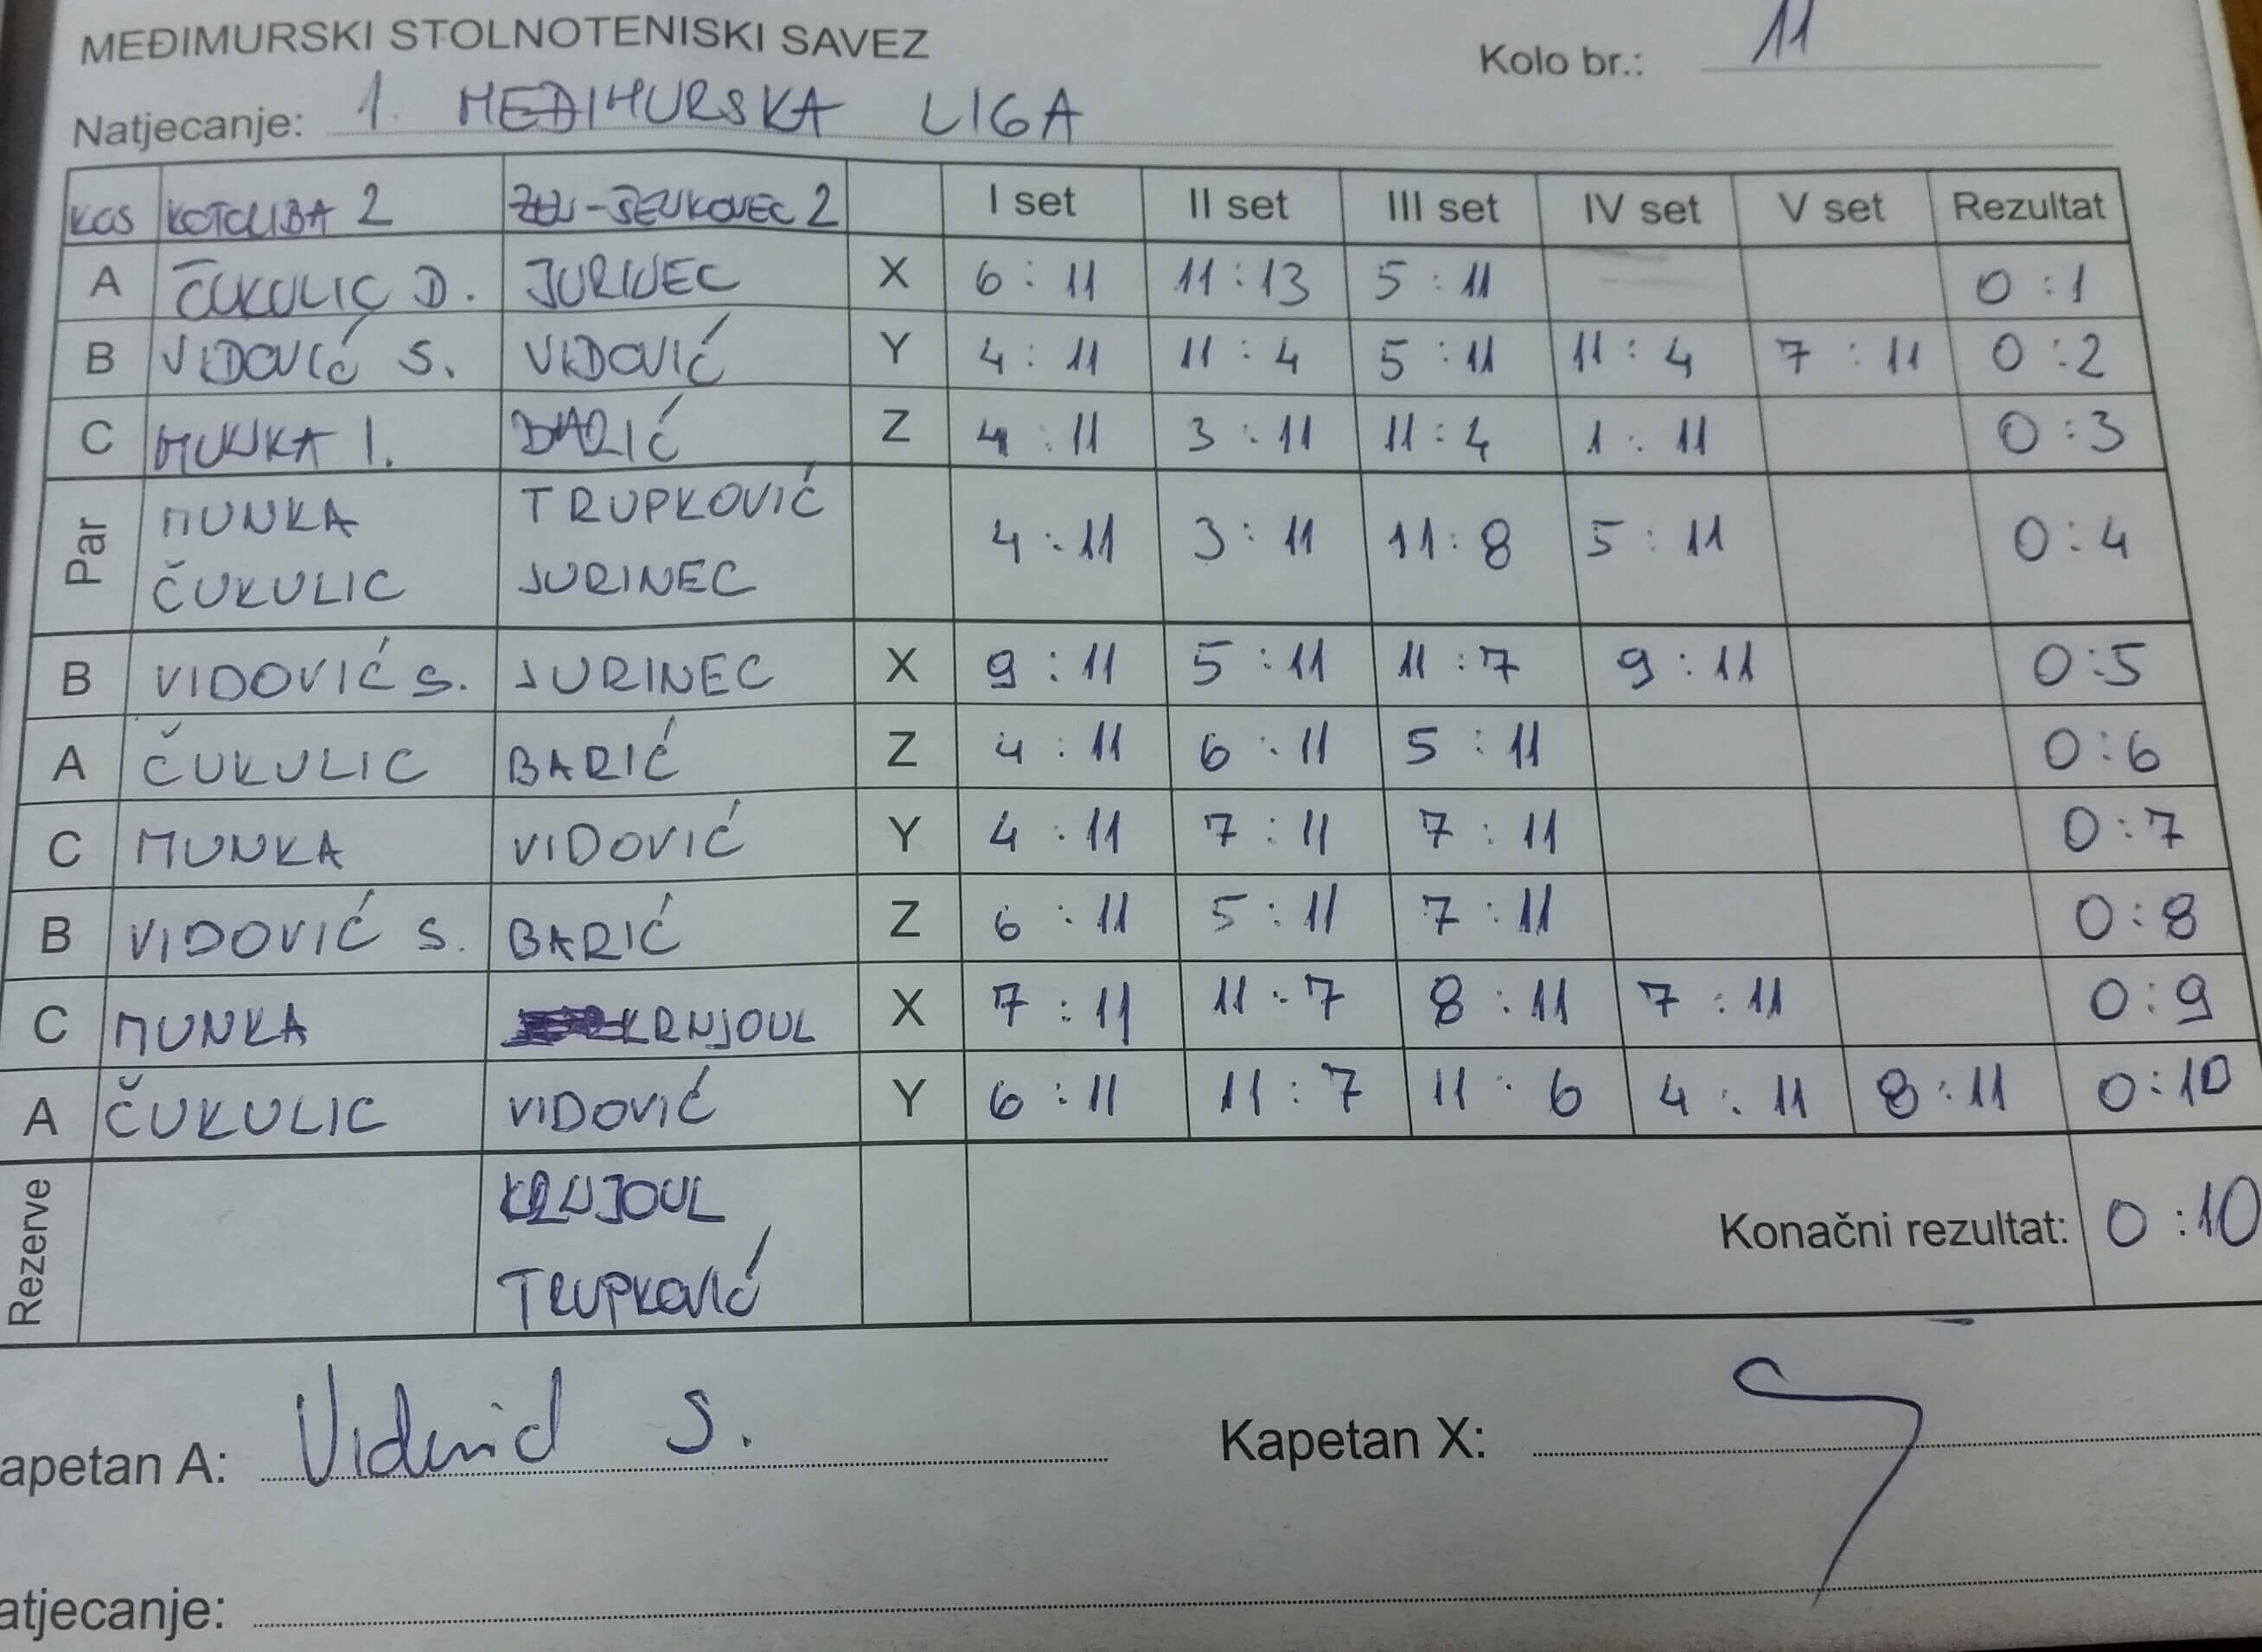 MEĐIMURSKI STOLNOTENISKI SAVEZ
Kolo br.: 11
Natjecanje: 1. MEĐIMURSKA LIGA
KGS KOTORIBA 2 JENKOVEC 2 I set II set III set IV set V set Rezultat
A ČUKULIC D. JURINEC X 6 : 11 11 : 13 5 : 11 0 : 1
B VIDOVIĆ S. VIDOVIĆ Y 4 : 11 11 : 4 5 : 11 11 : 4 7 : 11 0 : 2
C MUNKA I. BARIĆ Z 4 : 11 3 : 11 11 : 4 1 : 11 0 : 3
Par MUNKA TRUPKOVIĆ
ČUKULIC JURINEC 4 : 11 3 : 11 11 : 8 5 : 11 0 : 4
B VIDOVIĆ S. JURINEC X 9 : 11 5 : 11 11 : 7 9 : 11 0 : 5
A ČUKULIC BARIĆ Z 4 : 11 6 : 11 5 : 11 0 : 6
C MUNKA VIDOVIĆ Y 4 : 11 7 : 11 7 : 11 0 : 7
B VIDOVIĆ S. BARIĆ Z 6 : 11 5 : 11 7 : 11 0 : 8
C MUNKA KRNJOUL X 7 : 11 11 : 7 8 : 11 7 : 11 0 : 9
A ČUKULIC VIDOVIĆ Y 6 : 11 11 : 7 11 : 6 4 : 11 8 : 11 0 : 10
Rezerve KRNJOUL
TRUPKOVIĆ
Konačni rezultat: 0 : 10
apetan A: Vidović S.
Kapetan X:
atjecanje: